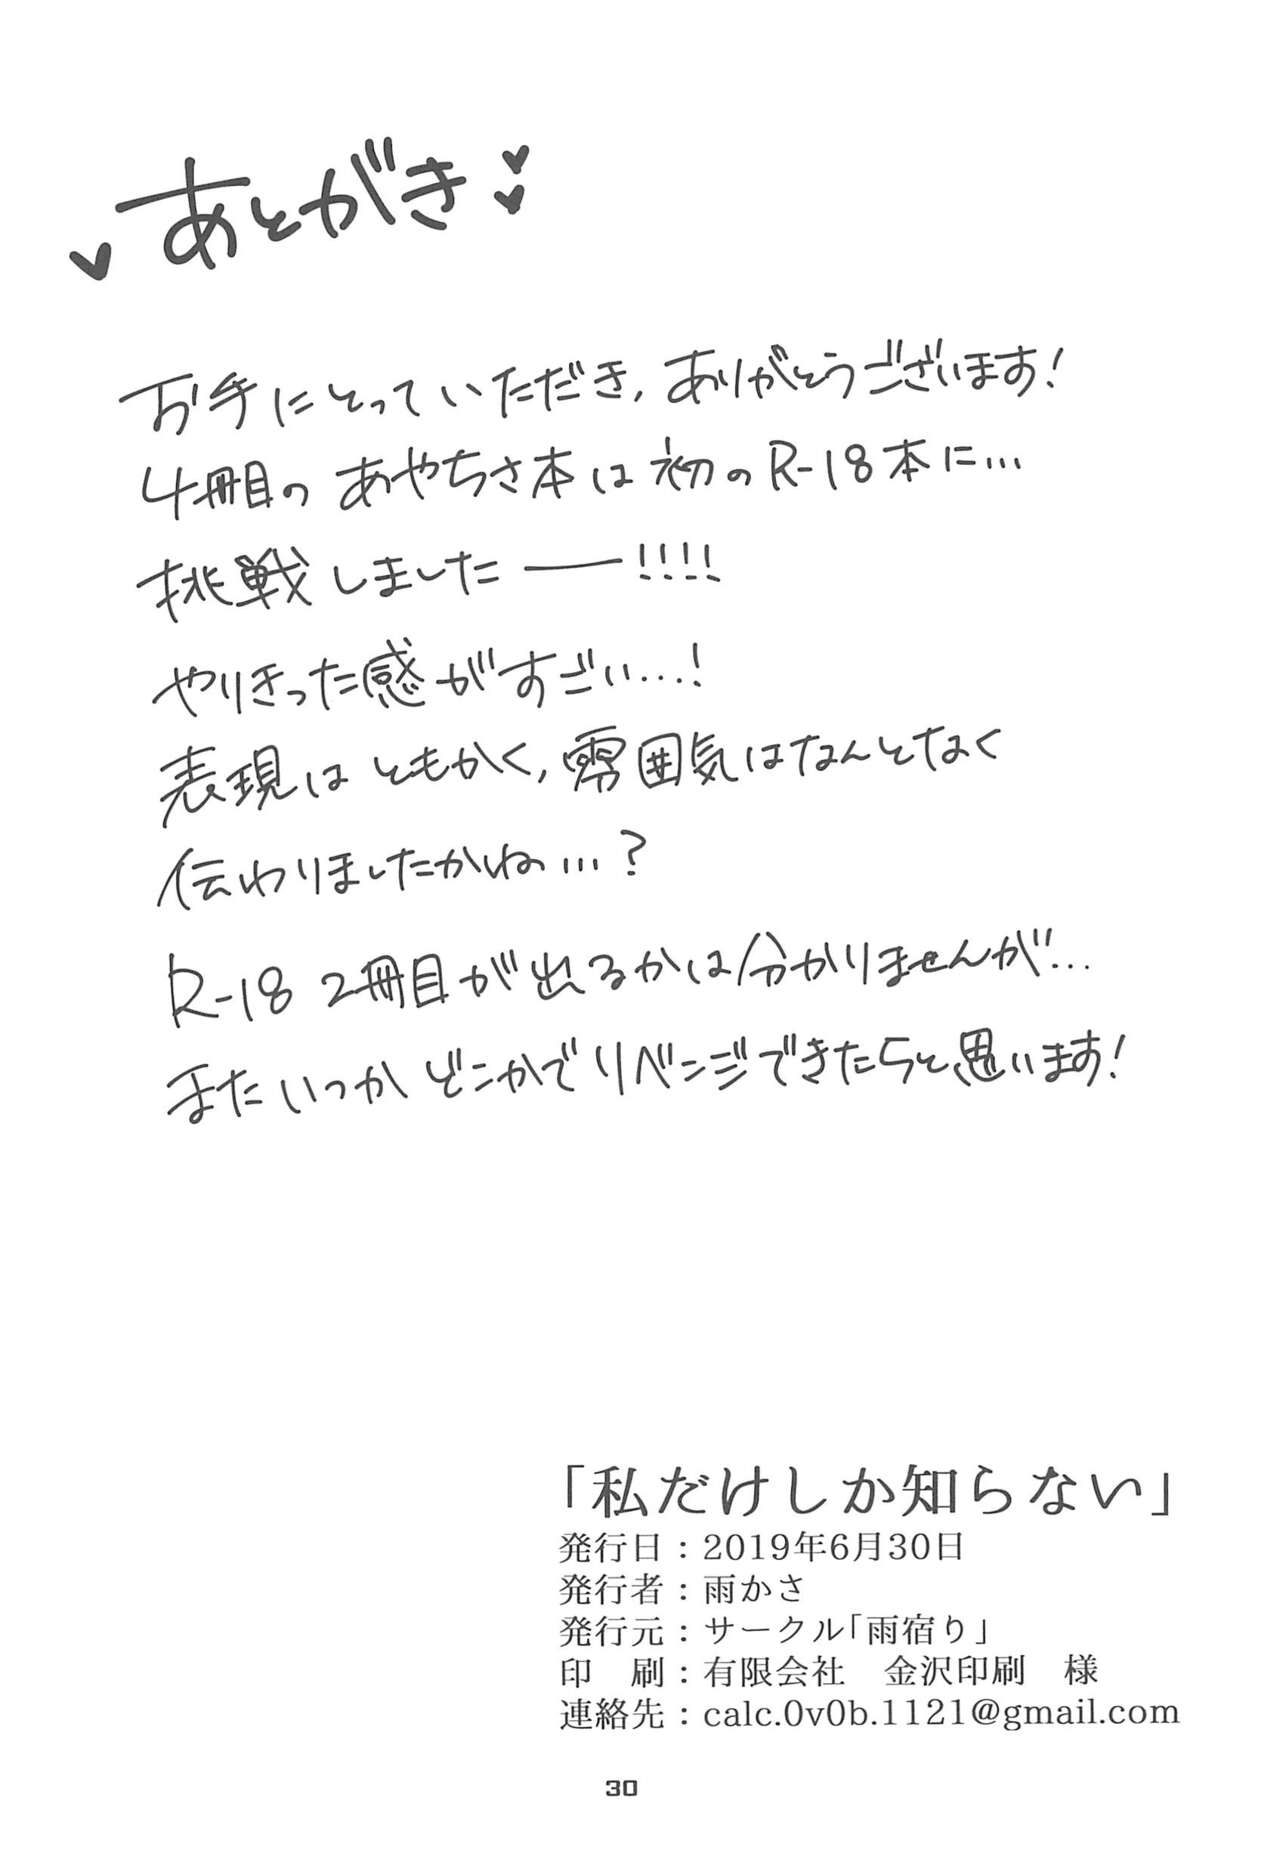 あとがき
お手にとっていただき、ありがとうございます!
4冊目のあやちさ本は初のR-18本に…
挑戦しましたー!!!!
やりきった感がすごい…!
表現はともかく、雰囲気はなんとなく
伝わりましたかね…?
R-18 2冊目が出るかは分かりませんが…
またいつかどこかでリベンジできたらと思います!
「私だけしか知らない」
発行日：2019年6月30日
発行者：雨かさ
発行元：サークル「雨宿り」
印　刷：有限会社　金沢印刷　様
連絡先：calc.0v0b.1121@gmail.com
30